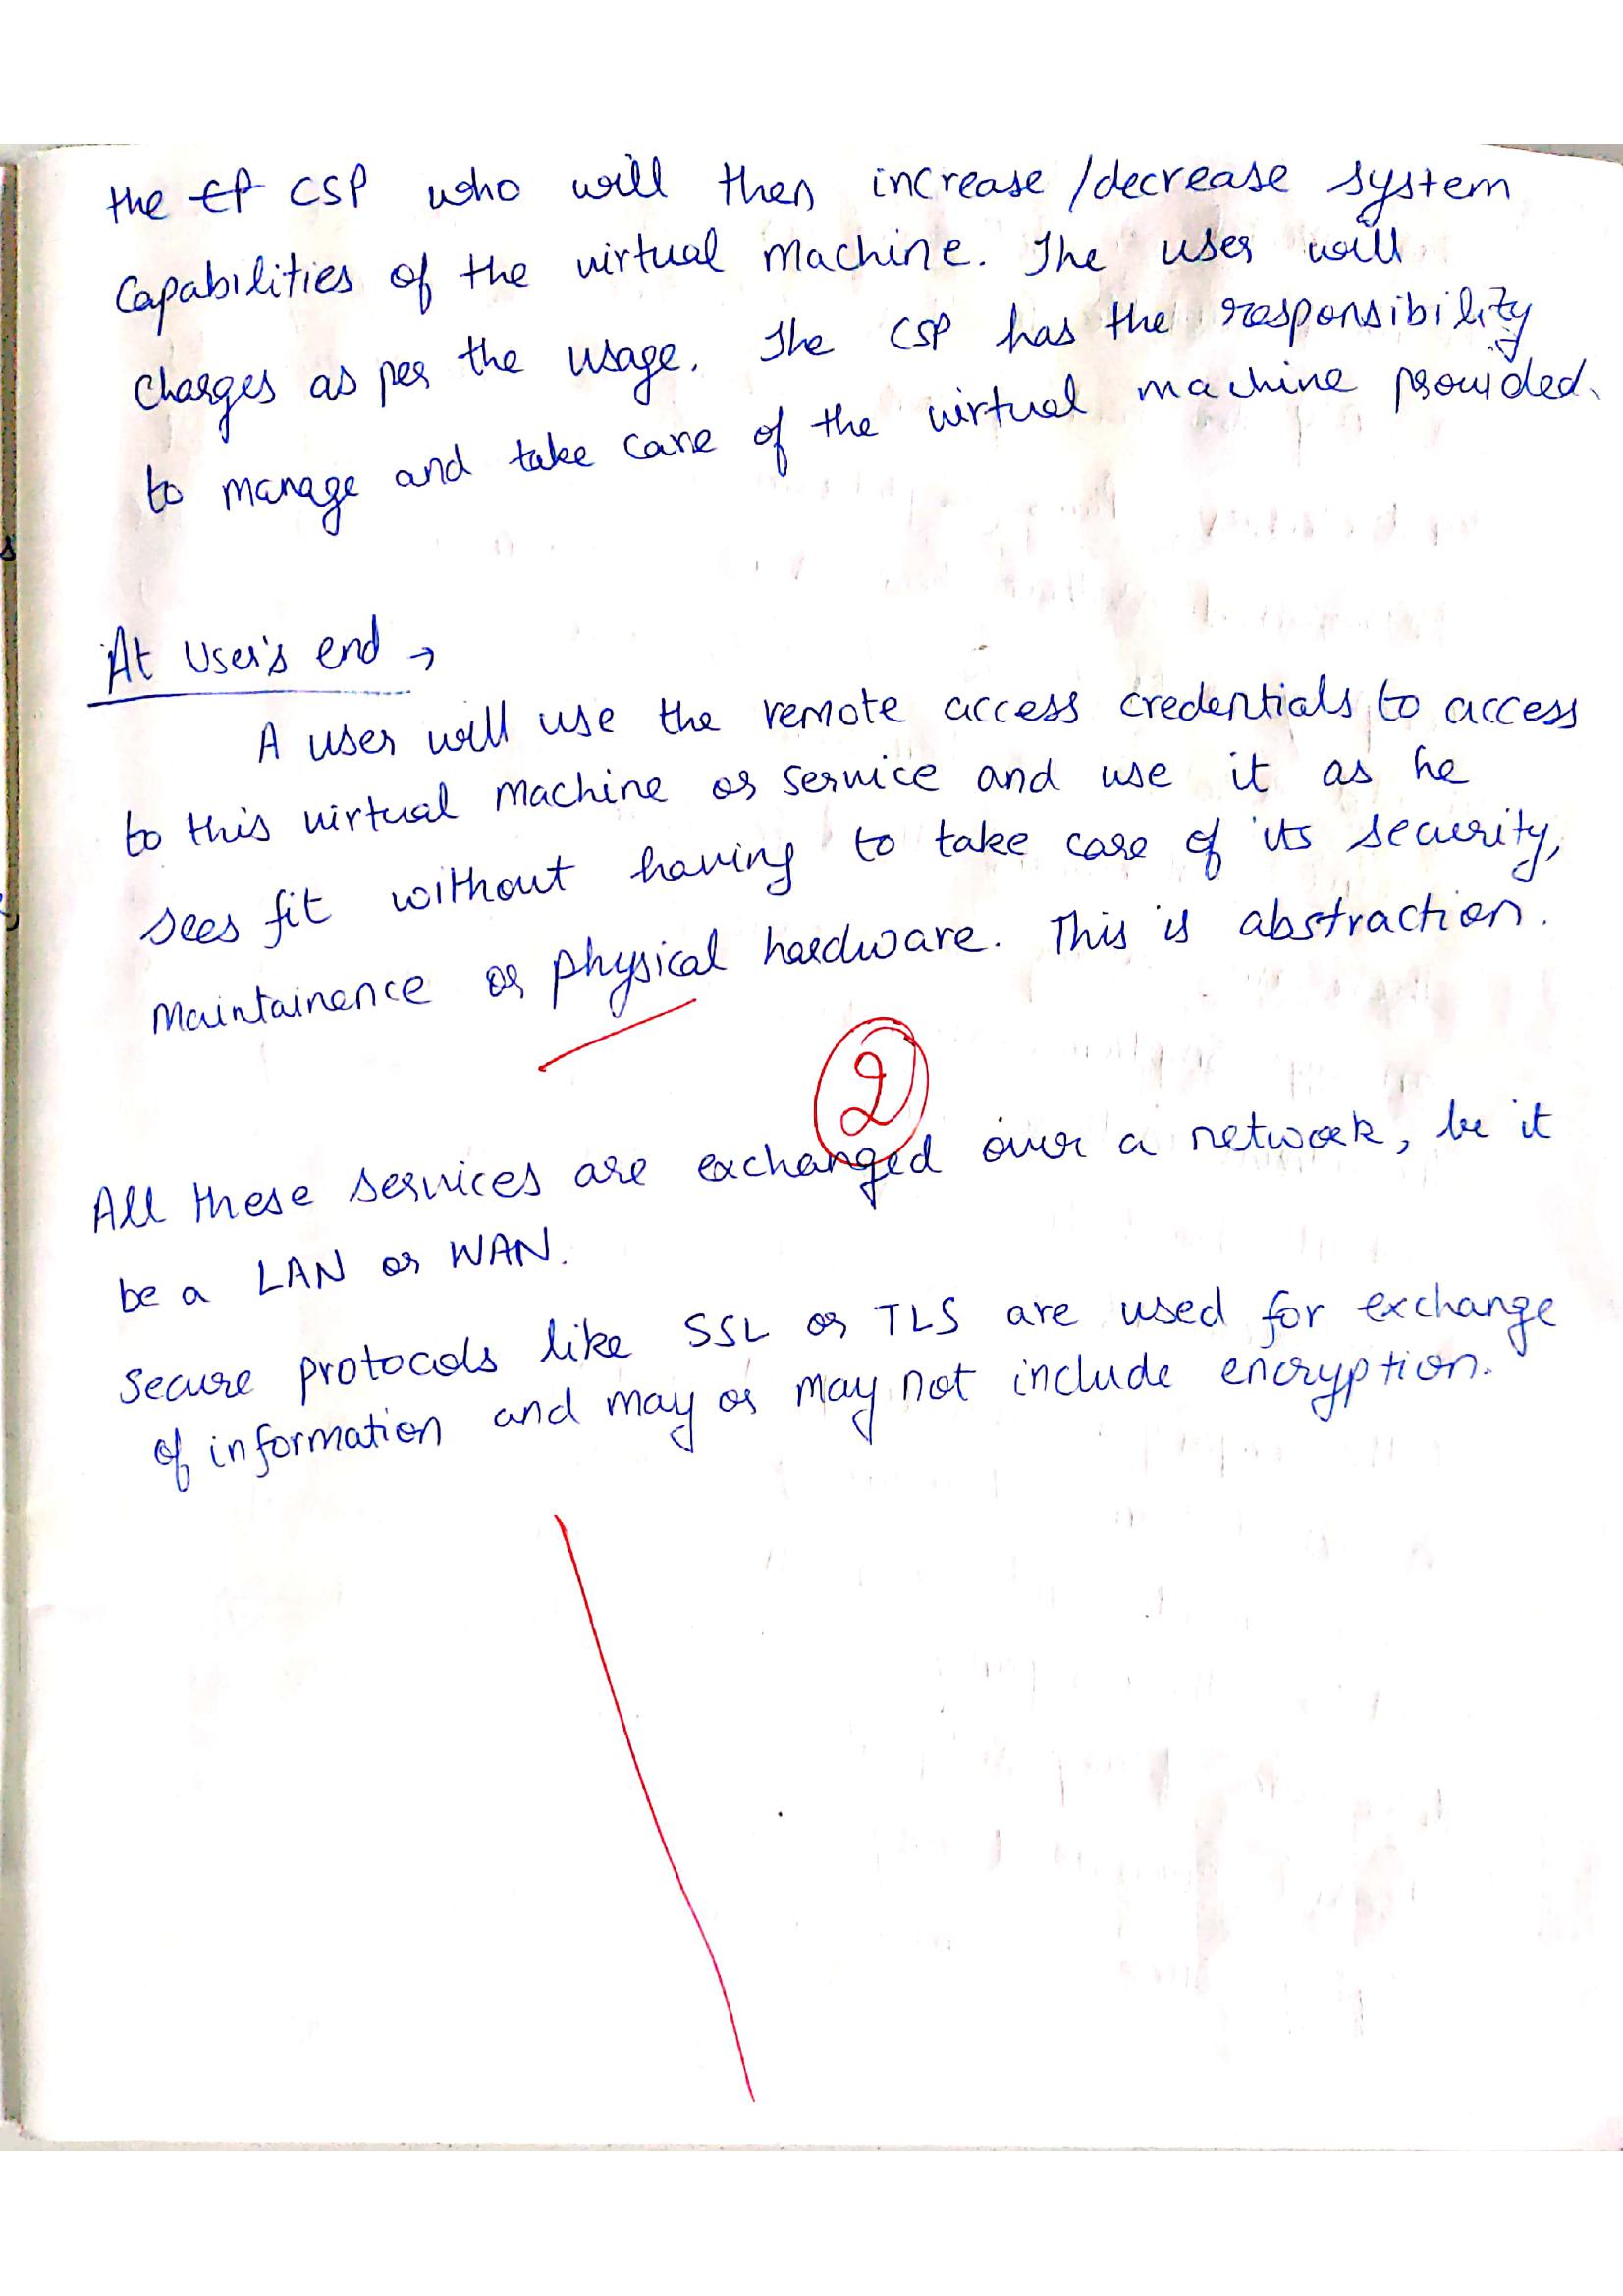 the CSP who will then increase/decrease system
capabilities of the virtual machine. The user will
charges as per the usage. The CSP has the responsibility
to manage and take care of the virtual machine provided.
At User's end →
A user will use the remote access credentials to access
to this virtual machine or service and use it as he
sees fit without having to take care of its security,
maintainence or physical hardware. This is abstraction.
2
All these services are exchanged over a network, be it
be a LAN or WAN.
Secure protocols like SSL or TLS are used for exchange
of information and may or may not include encryption.